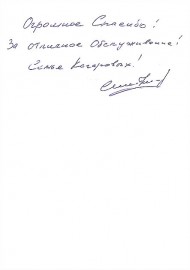 Огромное Спасибо!
За отличное Обслуживание!
Семья